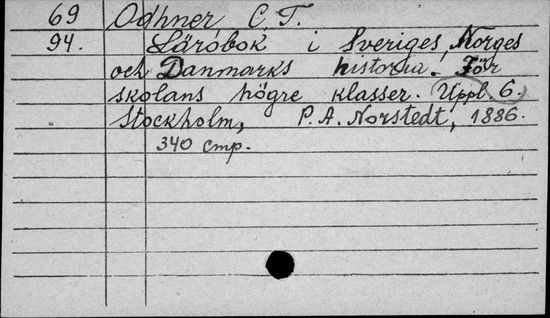 69 Odhner, C. T.
94. Lärobok i Sveriges, Norges
och Danmarks historia. För
skolans högre klasser. Uppl. 6.
Stockholm, P. A. Norstedt, 1886.
340 стр.